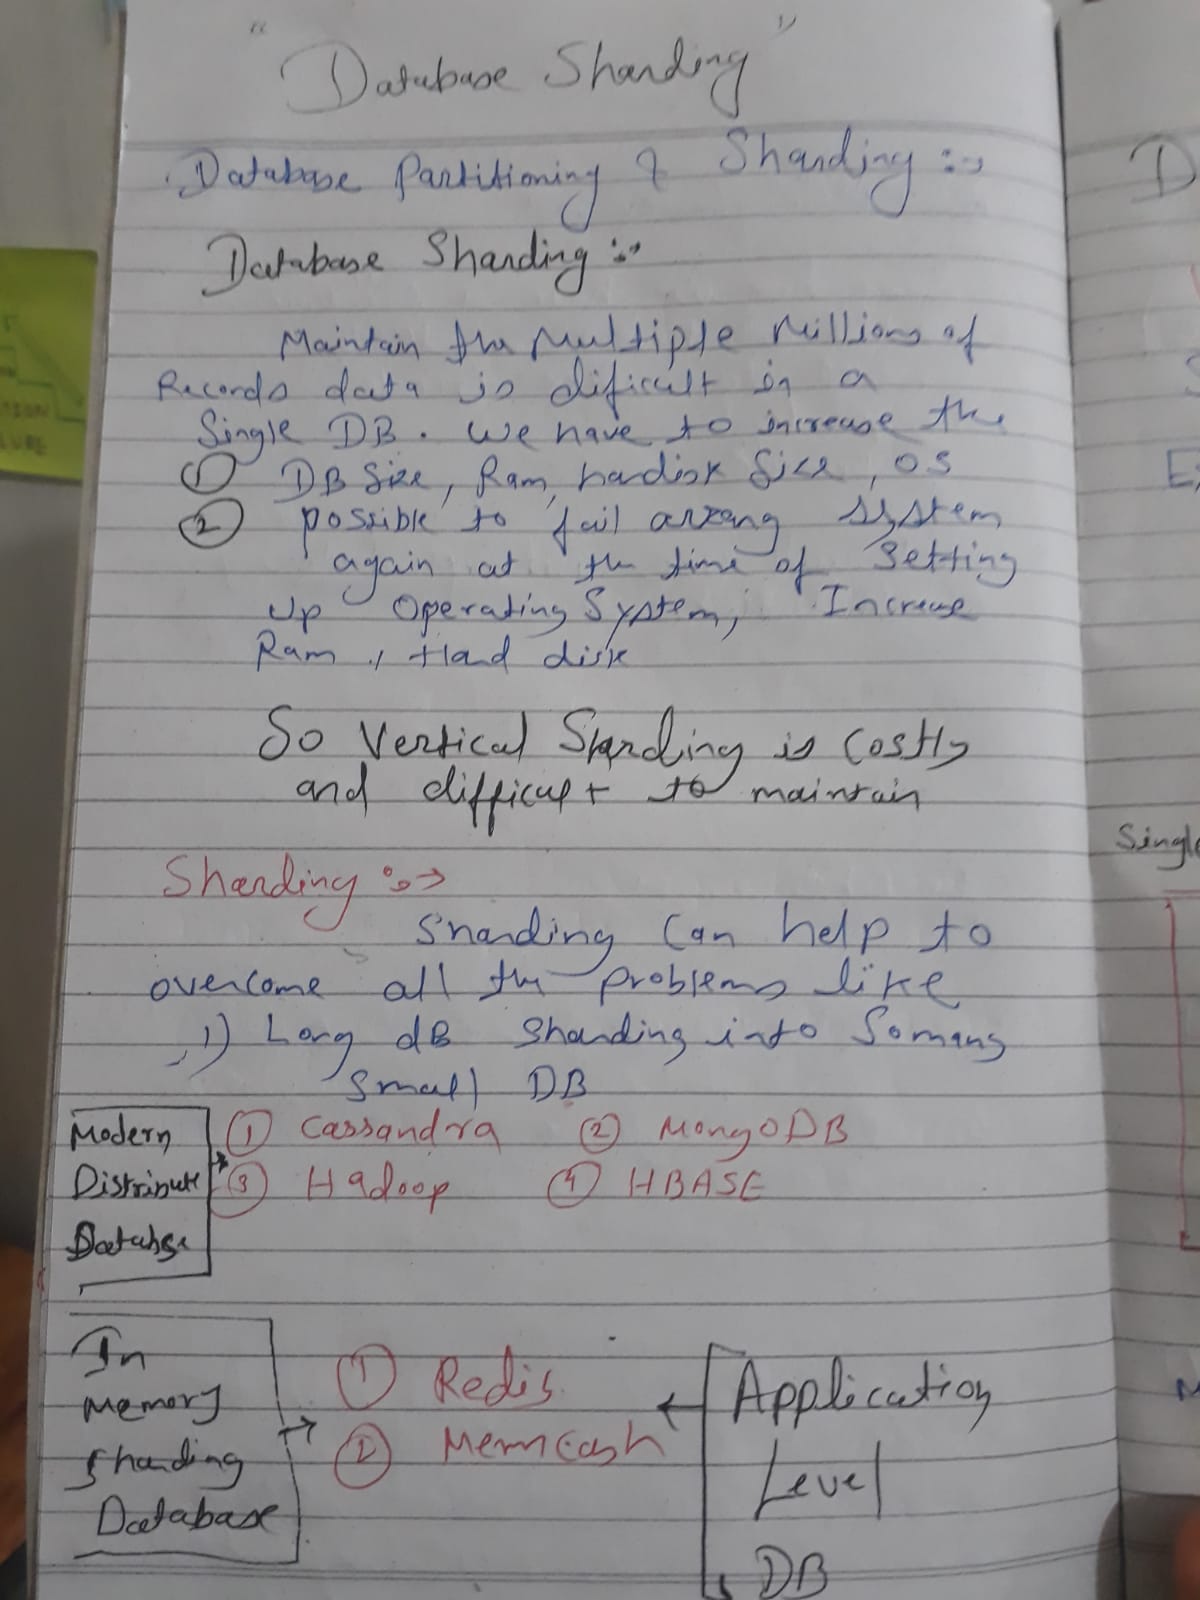 " Database Sharding "
Database Partitioning & Sharding :→
Database Sharding :→
Maintain the Multiple Millions of
Records data is dificult in a
Single DB. We have to increase the
① DB Size, Ram, hardisk Size, OS
② possible to fail system
again at the time of Setting
Up Operating System, Increase
Ram, Hard disk
So Vertical Sharding is Costly
and difficult to maintain
Sharding :→
Sharding Can help to
overcome all the problems like
1) Larg dB Sharding into Somany
Small DB
Modern
Distribute
Databse
① Cassandra ② MongoDB
③ Hadoop ④ HBASE
In
Memory
Sharding
Database
① Redis
② Memcash
Application
Level
DB
D
Single